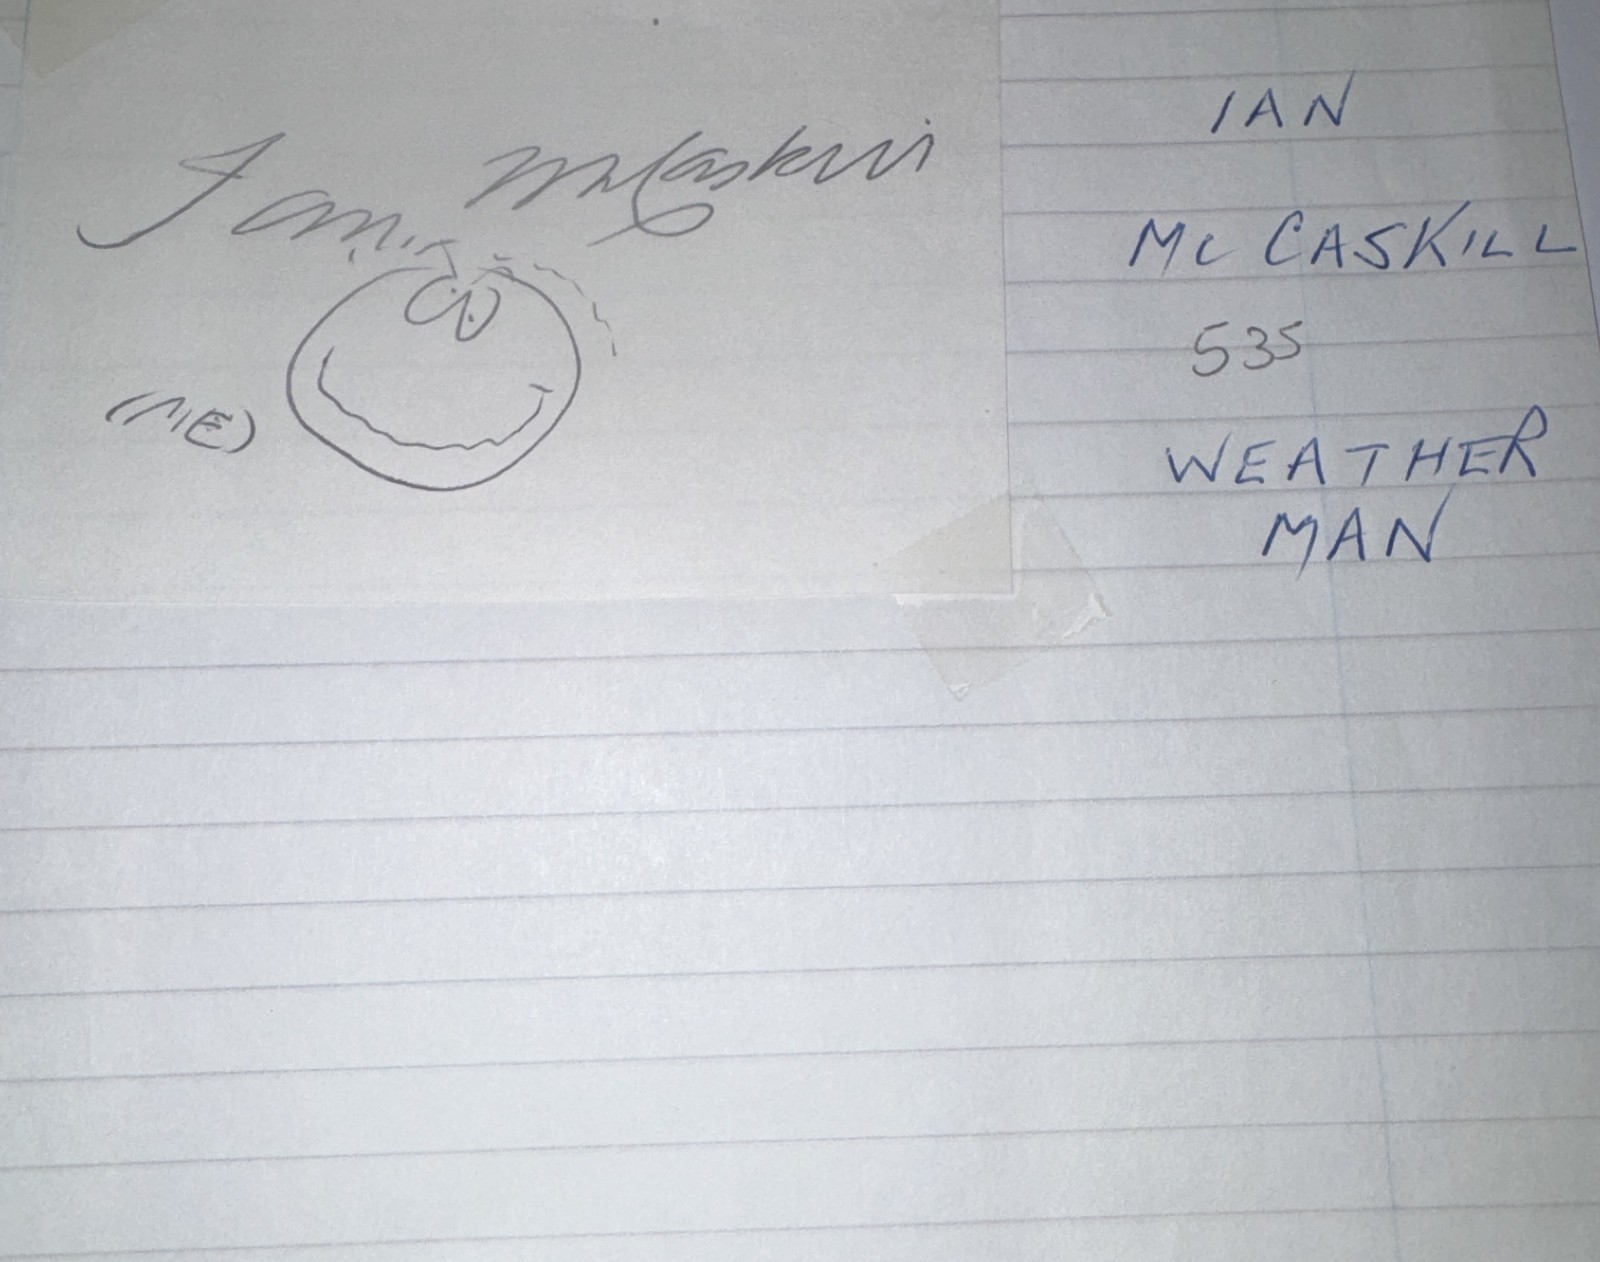 Ian McCaskill
(ME)
IAN
MC CASKILL
535
WEATHER
MAN